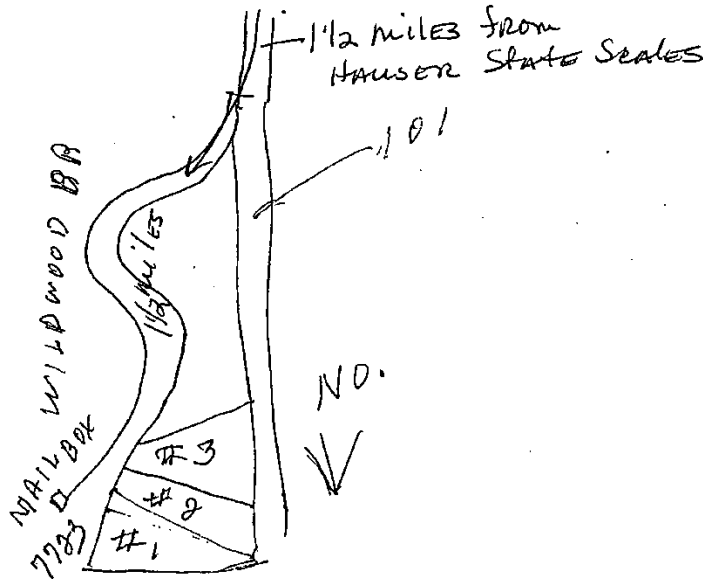 1 1/2 miles from
Hauser State Scales
101
WILDWOOD
1 1/2 miles
NO.
MAIL BOX
7723
#3
#2
#1